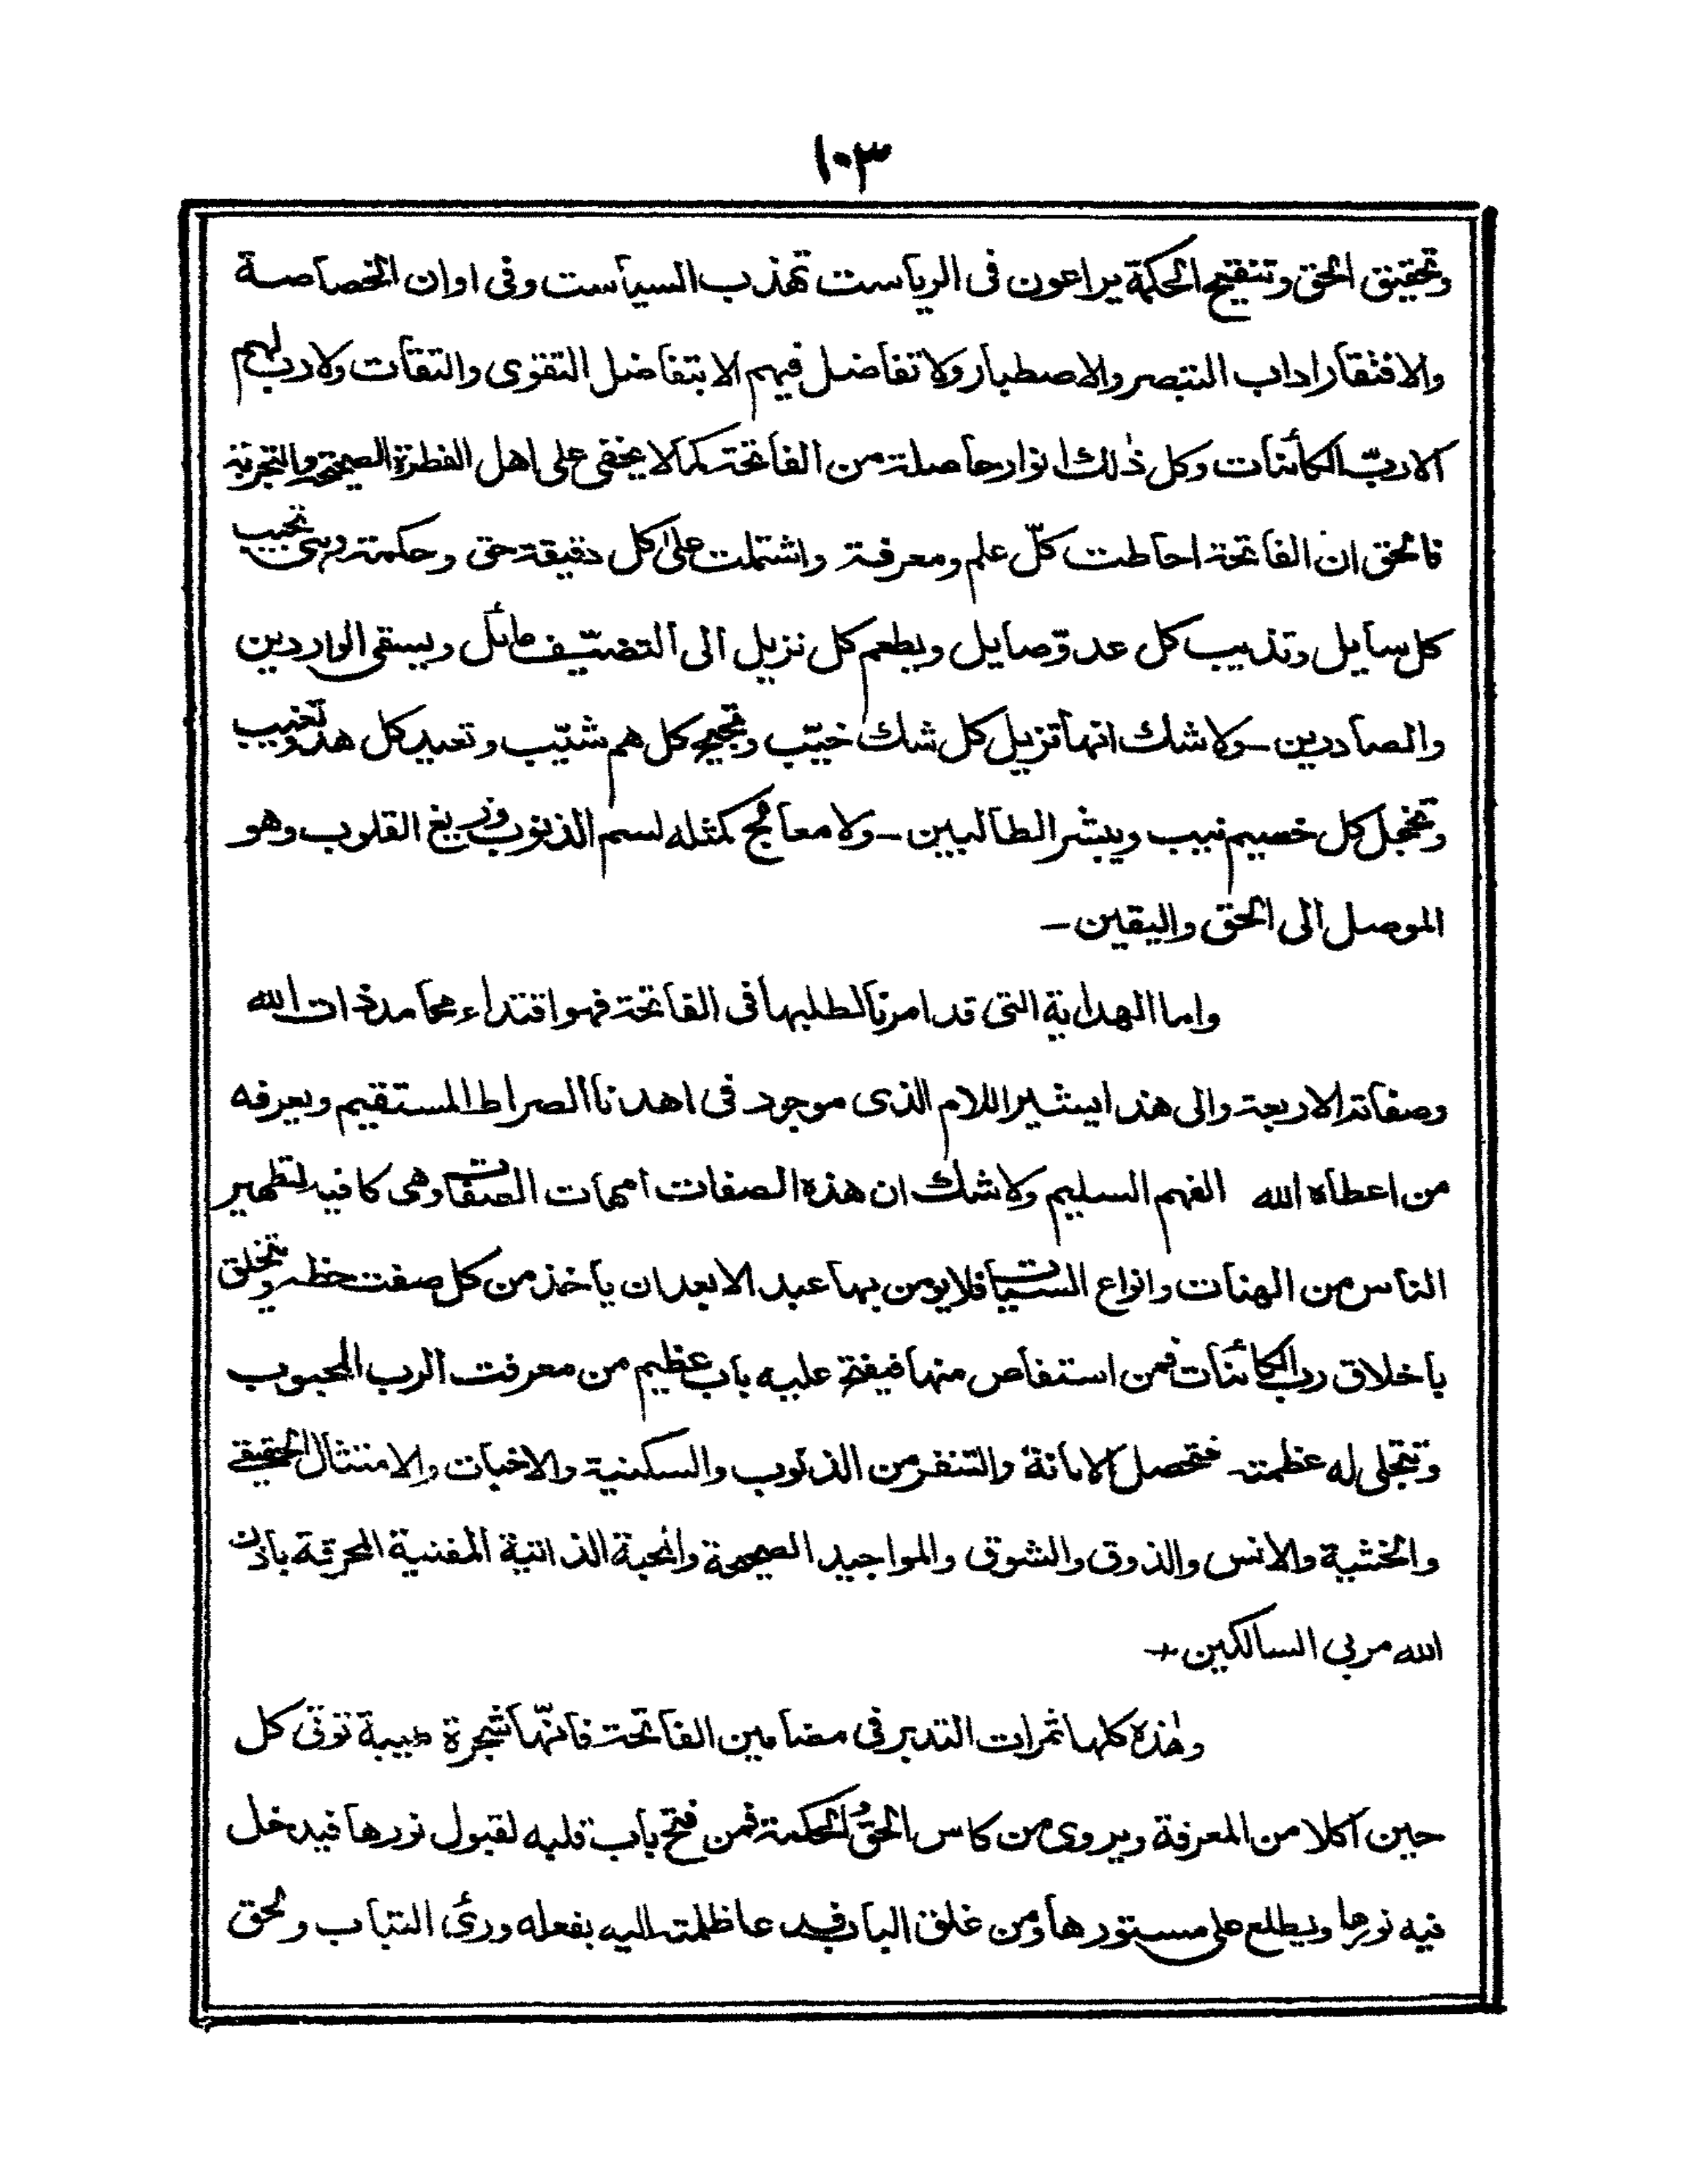 ١٠٣
وتحقيق الحق وتنقيح الحكمة يراعون فى الرياست تهذب السياست وفى اوان الخصاصة
والافتقار اداب التبصر والاصطبار ولا تفاضل فيهم الا بتفاضل التقوى والتقات ولا رب لهم
الا ربّ الكائنات وكل ذٰلك انوار حاصلة من الفاتحة كما لا يخفى على اهل الفطرة الصحيحة والتجربة
فالحق ان الفاتحة احاطت كلّ علم ومعرفة واشتملت علىٰ كل دقيقة حق وحكمة وهى تجيب
كل سايل وتذيب كل عدوّ صايل ويطعم كل نزيل الى التضيّف مائل ويسقى الواردين
والصادرين ـ ولا شك انها تزيل كل شك خيّب وتجيح كل هم شيّب وتعيد كل هدو تغيب
وتخجل كل خصيم نيب ويبشر الطالبين ـ ولا معالج كمثله لسم الذنوب وزيغ القلوب وهو
الموصل الى الحق واليقين ـ
واما الهداية التى قد امرنا لطلبها فى الفاتحة فهو اقتداء محامد ذات الله
وصفاته الاربعة والى هذا يشير اللام الذى موجود فى اهدنا الصراط المستقيم ويعرفه
من اعطاه الله الفهم السليم ولا شك ان هذه الصفات امهات الصفات وهى كافية لتطهير
الناس من الهنات وانواع السيات فلا يومن بها عبد الا بعد ان ياخذ من كل صفت حظه ويتخلق
باخلاق رب الكائنات فمن استفاض منها فيفتح عليه باب عظيم من معرفت الرب المحبوب
وتتجلى له عظمته فتحصل الامانة والتنفر من الذنوب والسكينة والاخبات والامتثال الحقيقے
والخشية والانس والذوق والشوق والمواجيد الصحيحة والمحبة الذاتية المفنية المحرقة باذن
الله مربى السالكين ـ
وهٰذه كلها ثمرات التدبر فى مضامين الفاتحة فانّها شجرة طيبة توتى كل
حين اكلا من المعرفة ويروى من كاس الحق والحكمة فمن فتح باب قلبه لقبول نورها فيدخل
فيه نورها ويطلع على مستورها ومن غلق الباب فدعا ظلمته اليه بفعله ورئ التباب ولحق